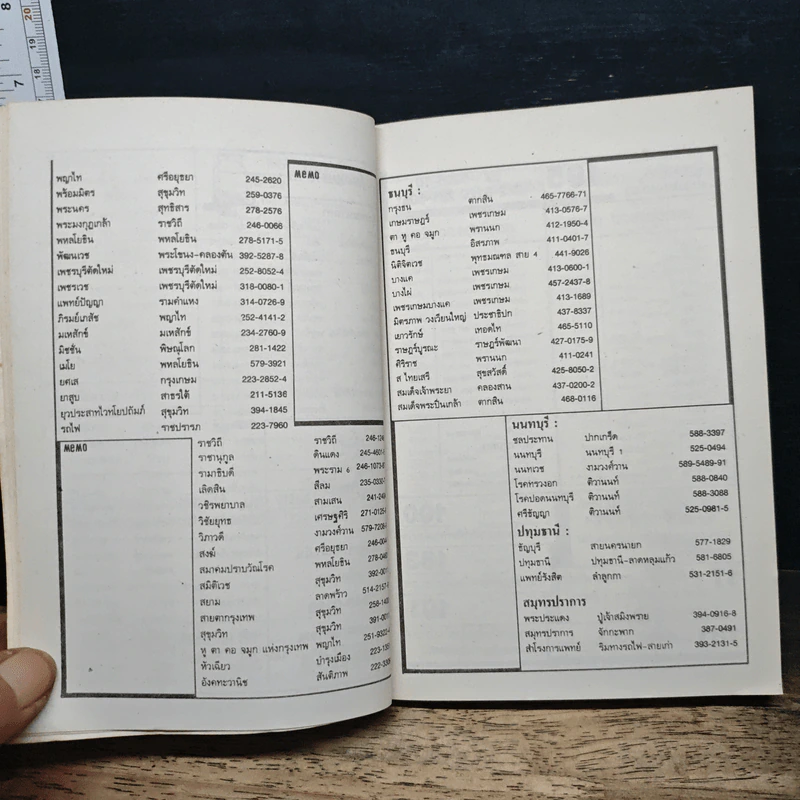 พญาไท ศรีอยุธยา 245-2620
พร้อมมิตร สุขุมวิท 259-0376
พระนคร สุทธิสาร 278-2576
พระมงกุฎเกล้า ราชวิถี 246-0066
พหลโยธิน พหลโยธิน 278-5171-5
พัฒนเวช พระโขนง-คลองตัน 392-5287-8
เพชรบุรีตัดใหม่ เพชรบุรีตัดใหม่ 252-8052-4
เพชรเวช เพชรบุรีตัดใหม่ 318-0080-1
แพทย์ปัญญา รามคำแหง 314-0726-9
ภิรมย์เภสัช พญาไท 252-4141-2
มเหสักข์ มเหสักข์ 234-2760-9
มิชชั่น พิษณุโลก 281-1422
เมโย พหลโยธิน 579-3921
ยศเส กรุงเกษม 223-2852-4
ยาสูบ สาธรใต้ 211-5136
ยุวประสาทไวทโยปถัมภ์ สุขุมวิท 394-1845
รถไฟ ราชปรารภ 223-7960
memo
memo
ราชวิถี ราชวิถี 246-124
ราชานุกูล ดินแดง 245-4601-
รามาธิบดี พระราม 6 246-1073-
เลิดสิน สีลม 235-0330-
วชิรพยาบาล สามเสน 241-24
วิชัยยุทธ เศรษฐศิริ 271-0125-
วิภาวดี งามวงศ์วาน 579-7206-
สงฆ์ ศรีอยุธยา 246-004
สมาคมปราบวัณโรค พหลโยธิน 278-040
สมิติเวช สุขุมวิท 392-001
สยาม ลาดพร้าว 514-2157-
สายตากรุงเทพ สุขุมวิท 258-140
สุขุมวิท สุขุมวิท 391-001
หู ตา คอ จมูก แห่งกรุงเทพ พญาไท 251-9322-
หัวเฉียว บำรุงเมือง 223-135
อังคทะวานิช สันติภาพ 222-330
ธนบุรี :
กรุงธน ตากสิน 465-7766-71
เกษมราษฎร์ เพชรเกษม 413-0576-7
ตา หู คอ จมูก พรานนก 412-1950-4
ธนบุรี อิสรภาพ 411-0401-7
นิติจิตเวช พุทธมณฑล สาย 4 441-9026
บางแค เพชรเกษม 413-0600-1
บางไผ่ เพชรเกษม 457-2437-8
เพชรเกษมบางแค เพชรเกษม 413-1689
มิตรภาพ วงเวียนใหญ่ ประชาธิปก 437-8337
เยาวรักษ์ เทอดไท 465-5110
ราษฎร์บูรณะ ราษฎร์พัฒนา 427-0175-9
ศิริราช พรานนก 411-0241
ส ไทยเสรี สุขสวัสดิ์ 425-8050-2
สมเด็จเจ้าพระยา คลองสาน 437-0200-2
สมเด็จพระปิ่นเกล้า ตากสิน 468-0116
นนทบุรี :
ชลประทาน ปากเกร็ด 588-3397
นนทบุรี นนทบุรี 1 525-0494
นนทเวช งามวงศ์วาน 589-5489-91
โรคทรวงอก ติวานนท์ 588-0840
โรคปอดนนทบุรี ติวานนท์ 588-3088
ศรีธัญญา ติวานนท์ 525-0981-5
ปทุมธานี :
ธัญบุรี สายนครนายก 577-1829
ปทุมธานี ปทุมธานี-ลาดหลุมแก้ว 581-6805
แพทย์รังสิต ลำลูกกา 531-2151-6
สมุทรปราการ
พระประแดง ปู่เจ้าสมิงพราย 394-0916-8
สมุทรปราการ จักกะพาก 387-0491
สำโรงการแพทย์ ริมทางรถไฟ-สายเก่า 393-2131-5